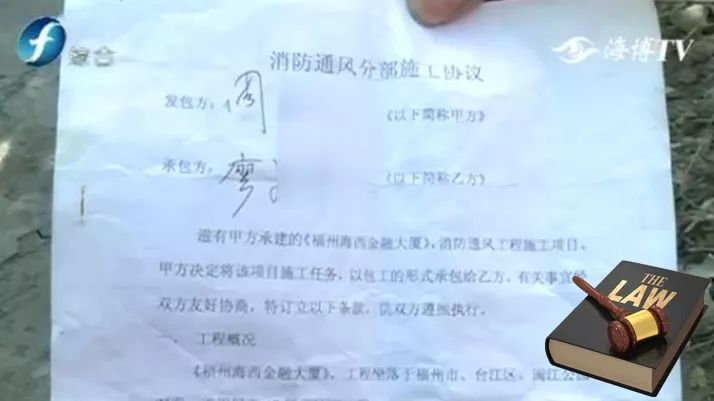 综合
海博TV
消防通风分部施工协议
发包方：周
《以下简称甲方》
承包方：廖
《以下简称乙方》
滋有甲方承建的《福州海西金融大厦》，消防通风工程施工项目。
甲方决定将该项目施工任务，以包工的形式承包给乙方，有关事宜经
双方友好协商，特订立以下条款，供双方遵照执行。
一、工程概况
《福州海西金融大厦》，工程坐落于福州市、台江区、闽江公园
THE
LAW